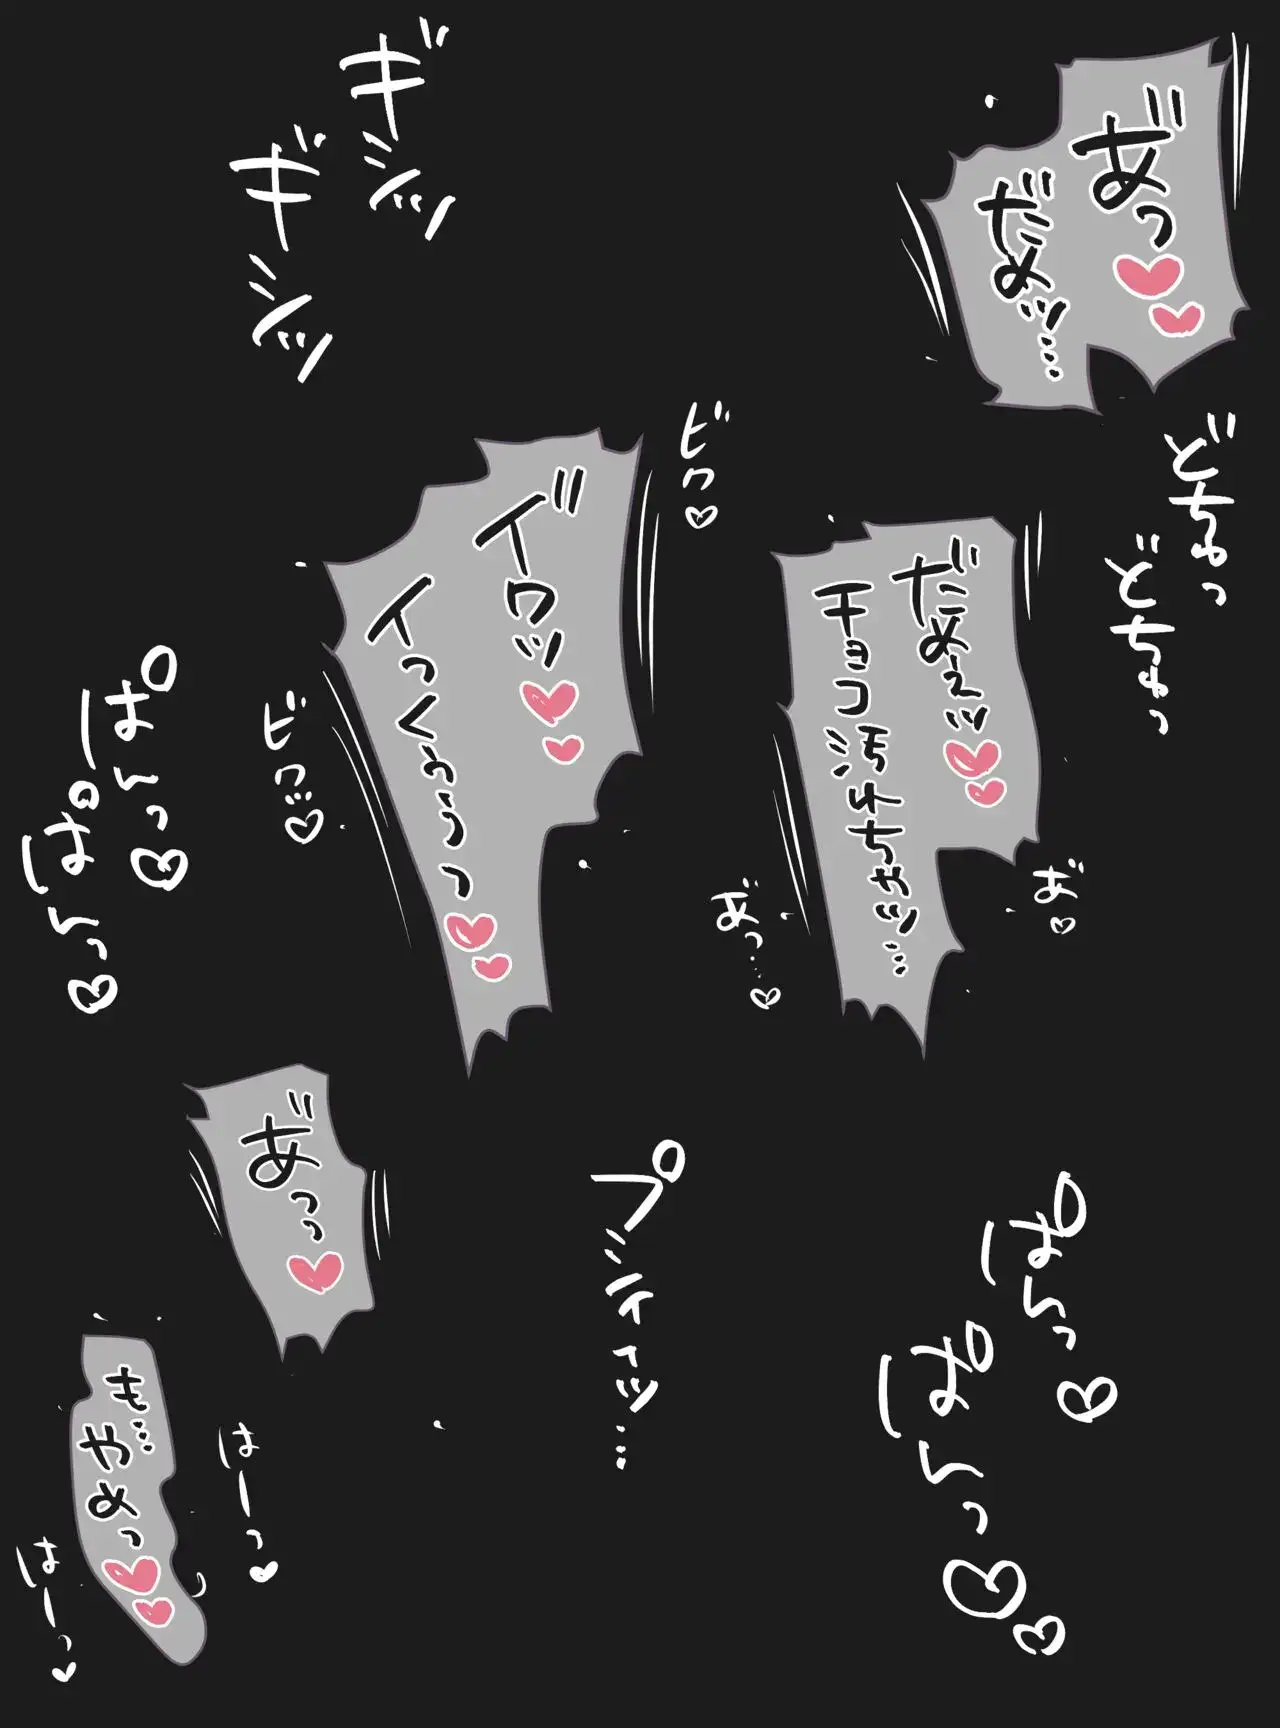 あ゛っ
だめ゛ッ…
ギシッ
ギシッ
どちゅっ
どちゅっ
だめ゛ぇッ
チョコ汚れちゃッ…
あ゛
あ゛っ…
ビク
イ゛クッ
イっくぅぅっ
ビク…
ぱんっ
ぱんっ
あ゛っっ
プシィッ…
ぱんっ
ぱんっ
も…やめっ
はーっ
はーっ